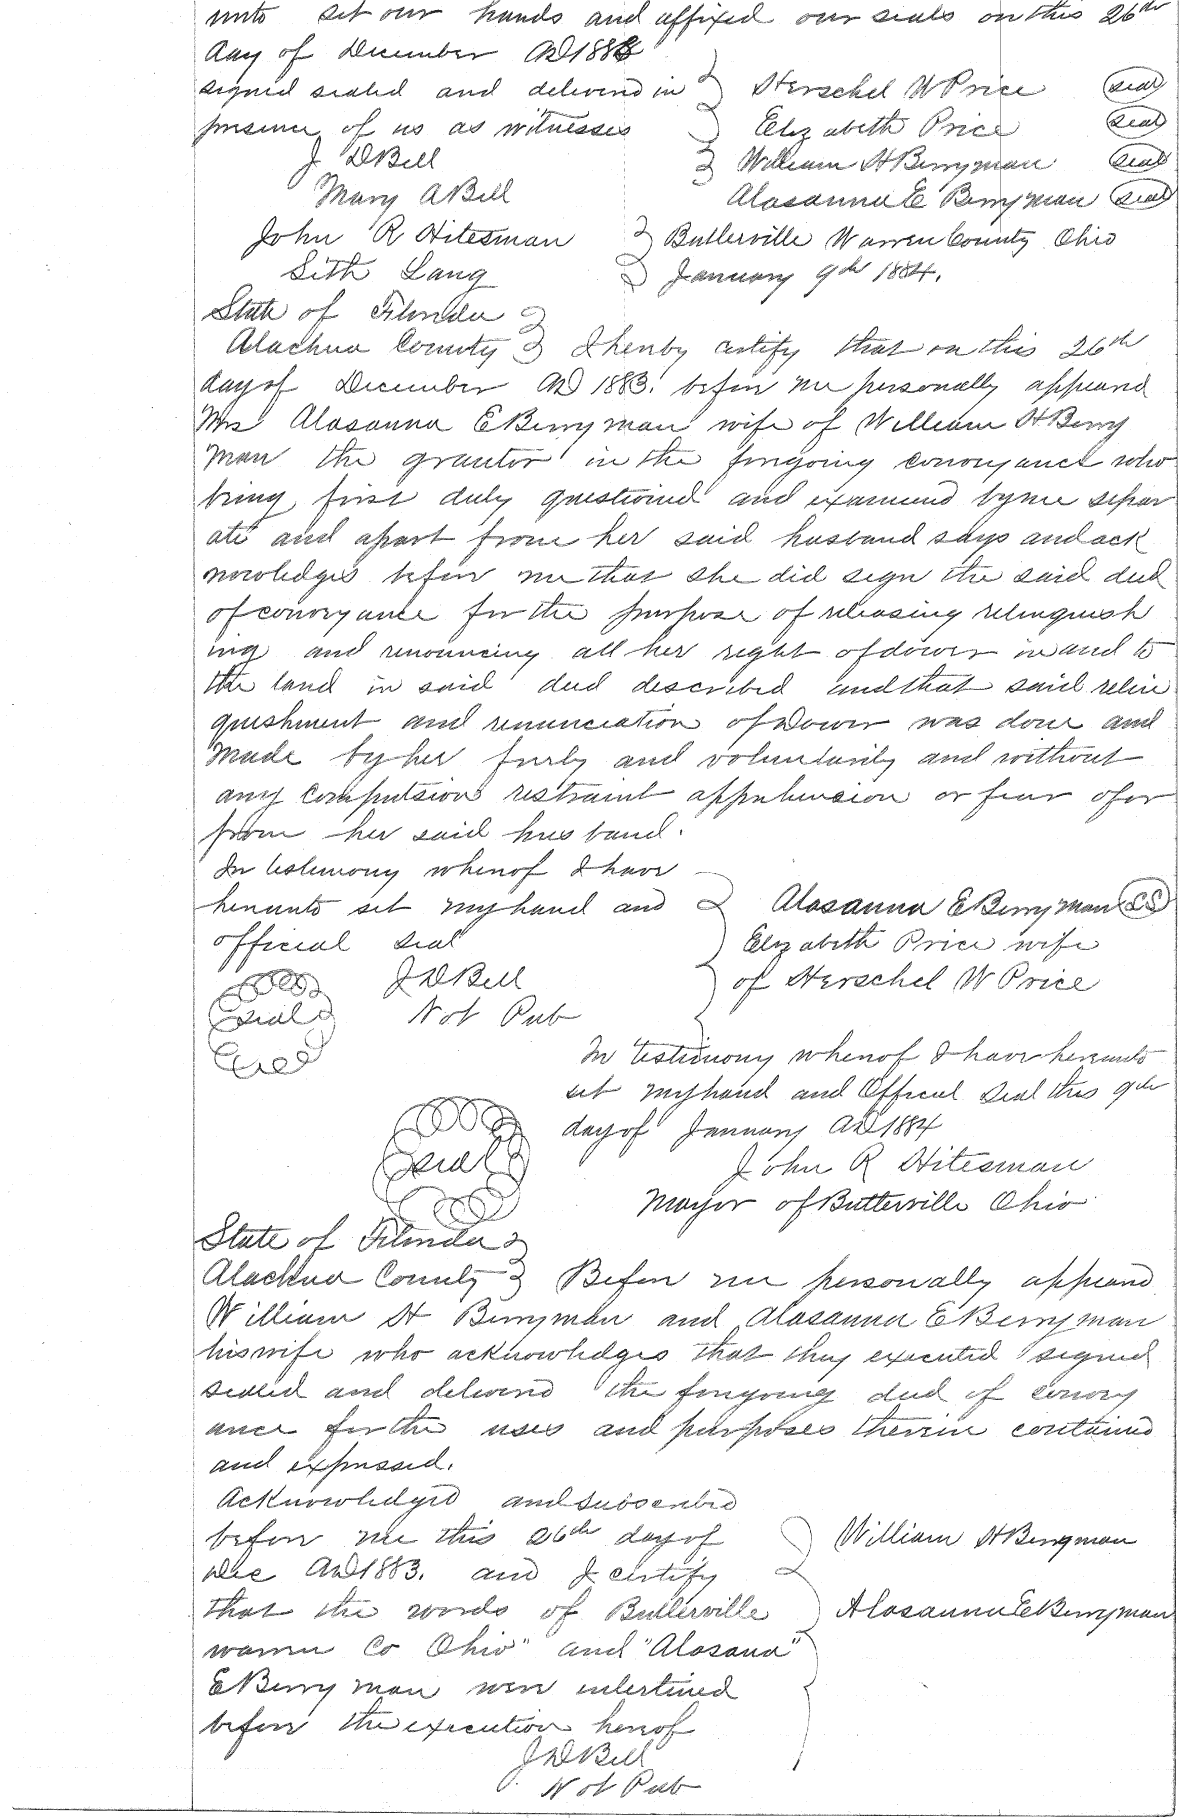 unto set our hands and affixed our seals on this 26th
day of December AD 1883
signed sealed and delivered in Herschel W Price seal
presence of us as witnesses Elizabeth Price seal
J D Bell William H Berryman seal
Mary A Bell Alosanna E Berryman seal
John R Hitesman Butlerville Warren County Ohio
Sith Lang January 9th 1884.
State of Florida
Alachua County I hereby certify that on this 26th
day of December AD 1883. before me personally appeared
Mrs Alosanna E Berryman wife of William H Berry
man the grantor in the foregoing conveyance who
being first duly questioned and examined by me separ
ate and apart from her said husband says and ack
nowledges before me that she did sign the said deed
of conveyance for the purpose of releasing relinquish
ing and renouncing all her right of dower in and to
the land in said deed described and that said relin
quishment and renunciation of Dower was done and
made by her freely and voluntarily and without
any compulsion restraint apprehension or fear of or
from her said husband.
In testimony whereof I have
hereunto set my hand and Alosanna E Berryman LS
official seal Elizabeth Price wife
J D Bell of Herschel W Price
seal Not Pub
In testimony whereof I have hereunto
set my hand and Official Seal this 9th
day of January AD 1884
seal John R Hitesman
Mayor of Butlerville Ohio
State of Florida
Alachua County Before me personally appeard
William H Berryman and Alosanna E Berryman
his wife who acknowledges that they executed signed
sealed and delivered the foregoing deed of convey
ance for the uses and purposes therein contained
and expressed.
Acknowledged and subscribed
before me this 26th day of William H Berryman
Dec AD 1883. and I certify
that the words of Butlerville Alosanna E Berryman
warren Co Ohio" and "Alosana"
E Berryman were interlined
before the execution hereof
J D Bell
Not Pub